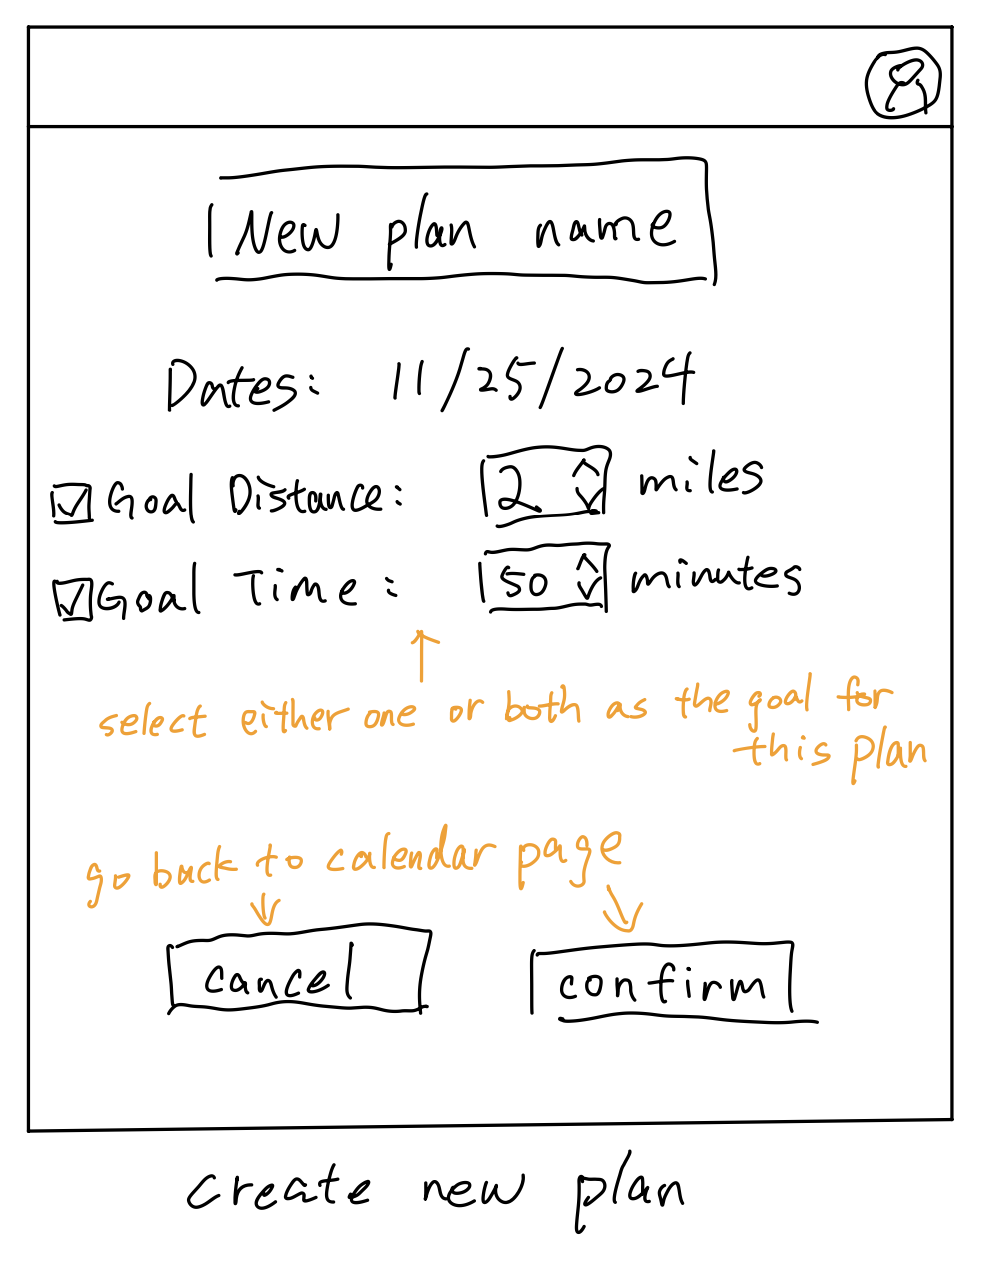 New plan name
Dates: 11/25/2024
Goal Distance: 2 miles
Goal Time: 50 minutes
select either one or both as the goal for
this plan
go back to calendar page
cancel confirm
create new plan